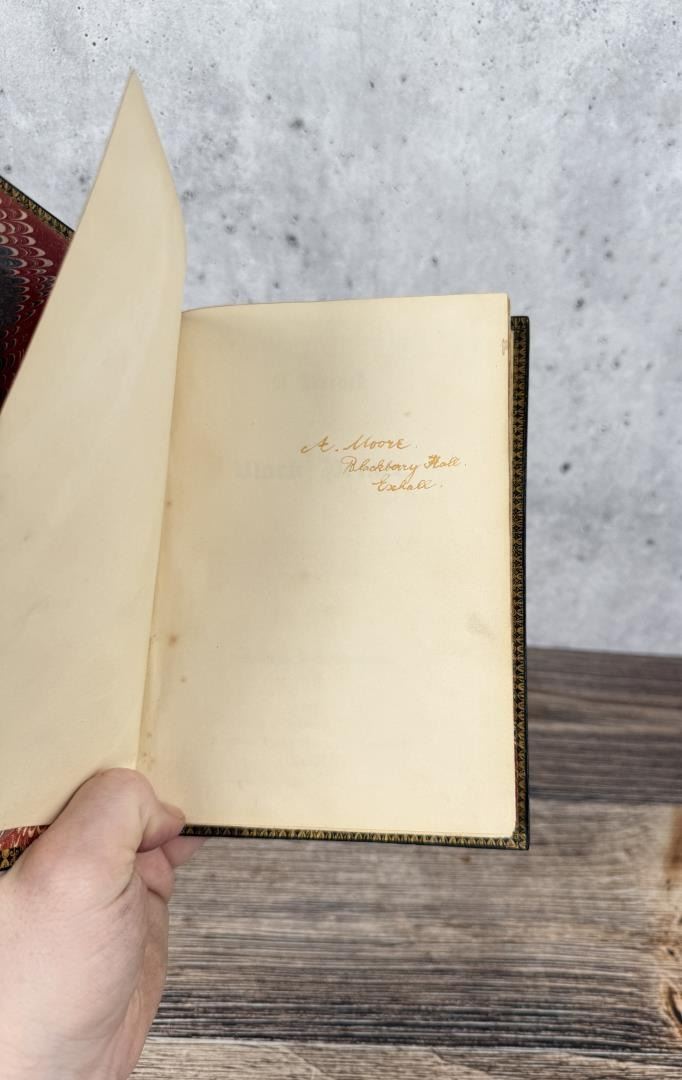 A. Moore.
Blackberry Hall.
Exhall.